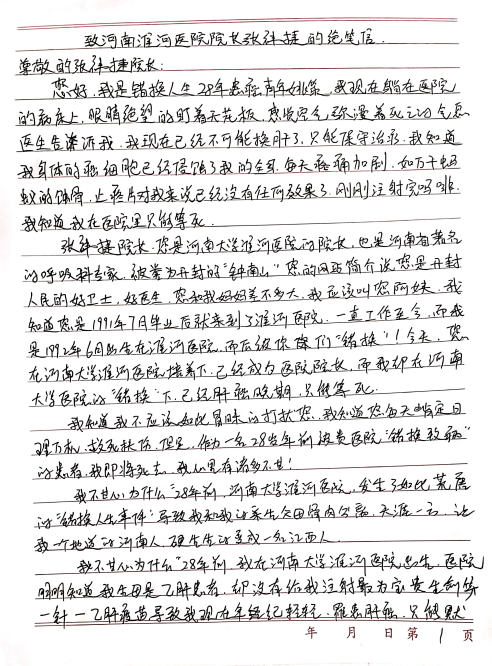 致河南淮河医院院长张祎捷的绝笔信
尊敬的张祎捷院长:
您好,我是错换人生28年患癌青年姚策,我现在躺在医院
的病床上,眼睛绝望的盯着天花板,感觉空气弥漫着死亡的气息
医生告诉我,我现在已经不可能换肝了,只能保守治疗,我知道
我身体的癌细胞已经侵蚀了我的全身,每天疼痛加剧,如万千蚂
蚁的蚀骨,止疼片对我来说已经没有任何效果了,刚刚注射完吗啡,
我知道我在医院里只能等死.
张祎捷院长,您是河南大学淮河医院的院长,也是河南省著名
的呼吸科专家,被誉为开封的"钟南山",您的网站简介说您是开封
人民的好卫士,好医生,您和我妈妈差不多大,我应该叫您阿姨,我
知道您是1991年7月毕业后就来到了淮河医院,一直工作至今,而我
是1992年6月出生在淮河医院,而后被你们"错换"!今天,您
在河南大学淮河医院 已经成为医院院长,而我却在河南
大学医院的"错换"下,已经肝癌晚期,只能等死.
我知道我不应该如此冒昧的打扰您,我知道您每天肯定日
理万机,救死扶伤,但是,作为一个28岁年前被贵医院"错换致病"
的患者,我即将死去,我心里有诸多不甘!
我不甘心,为什么"28年前,河南大学淮河医院,发生了如此荒唐
的"错换人生事件"导致我和我的亲生父母骨肉分离,天涯一方,让
我一个地道的河南人,硬生生的变成一名江西人.
我不甘心"为什么"28年前,我在河南大学淮河医院出生,医院
明明知道我生母是乙肝患者,却没有给我注射最为宝贵生命第
一针——乙肝疫苗导致我现在年纪轻轻,罹患肝癌,只能默
年 月 日 第 1 页